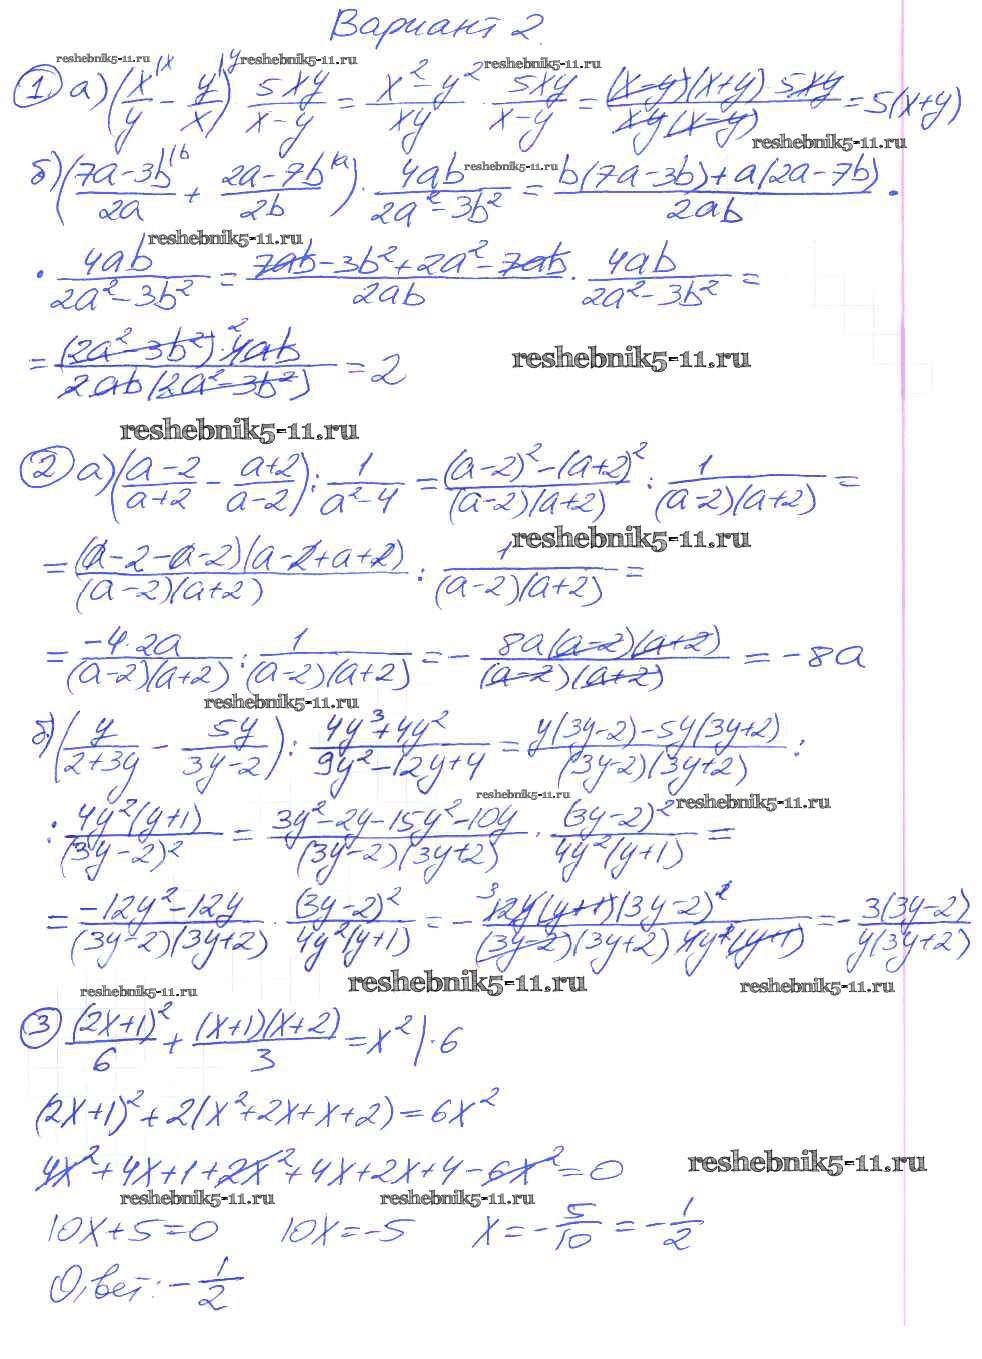 Вариант 2.
reshebnik5-11.ru reshebnik5-11.ru reshebnik5-11.ru
① а) (x/y |x - y/x |y) · 5xy/(x-y) = (x²-y²)/(xy) · 5xy/(x-y) = (x-y)(x+y) 5xy/(xy(x-y)) = 5(x+y)
reshebnik5-11.ru
б) ((7a-3b)/(2a) |b + (2a-7b)/(2b) |a) · 4ab/(2a²-3b²) = (b(7a-3b)+a(2a-7b))/(2ab) ·
reshebnik5-11.ru
reshebnik5-11.ru
· 4ab/(2a²-3b²) = (7ab-3b²+2a²-7ab)/(2ab) · 4ab/(2a²-3b²) =
= (2a²-3b²)·4ab 2/(2ab(2a²-3b²)) = 2
reshebnik5-11.ru
reshebnik5-11.ru
② а) ((a-2)/(a+2) - (a+2)/(a-2)) : 1/(a²-4) = ((a-2)²-(a+2)²)/((a-2)(a+2)) : 1/((a-2)(a+2)) =
reshebnik5-11.ru
= (a-2-a-2)(a-2+a+2)/((a-2)(a+2)) : 1/((a-2)(a+2)) =
= -4·2a/((a-2)(a+2)) : 1/((a-2)(a+2)) = - 8a(a-2)(a+2)/((a-2)(a+2)) = -8a
reshebnik5-11.ru
б) (y/(2+3y) - 5y/(3y-2)) : (4y³+4y²)/(9y²-12y+4) = (y(3y-2)-5y(3y+2))/((3y-2)(3y+2)) :
reshebnik5-11.ru reshebnik5-11.ru
: 4y²(y+1)/(3y-2)² = (3y²-2y-15y²-10y)/((3y-2)(3y+2)) · (3y-2)²/(4y²(y+1)) =
= (-12y²-12y)/((3y-2)(3y+2)) · (3y-2)²/(4y²(y+1)) = - 3 12y(y+1)(3y-2)²/((3y-2)(3y+2) 4y²(y+1)) = - 3(3y-2)/(y(3y+2))
reshebnik5-11.ru reshebnik5-11.ru reshebnik5-11.ru
③ (2x+1)²/6 + (x+1)(x+2)/3 = x² |·6
(2x+1)²+2(x²+2x+x+2)=6x²
4x²+4x+1+2x²+4x+2x+4-6x²=0
reshebnik5-11.ru
reshebnik5-11.ru reshebnik5-11.ru
10x+5=0 10x=-5 x=-5/10=-1/2
Ответ: -1/2